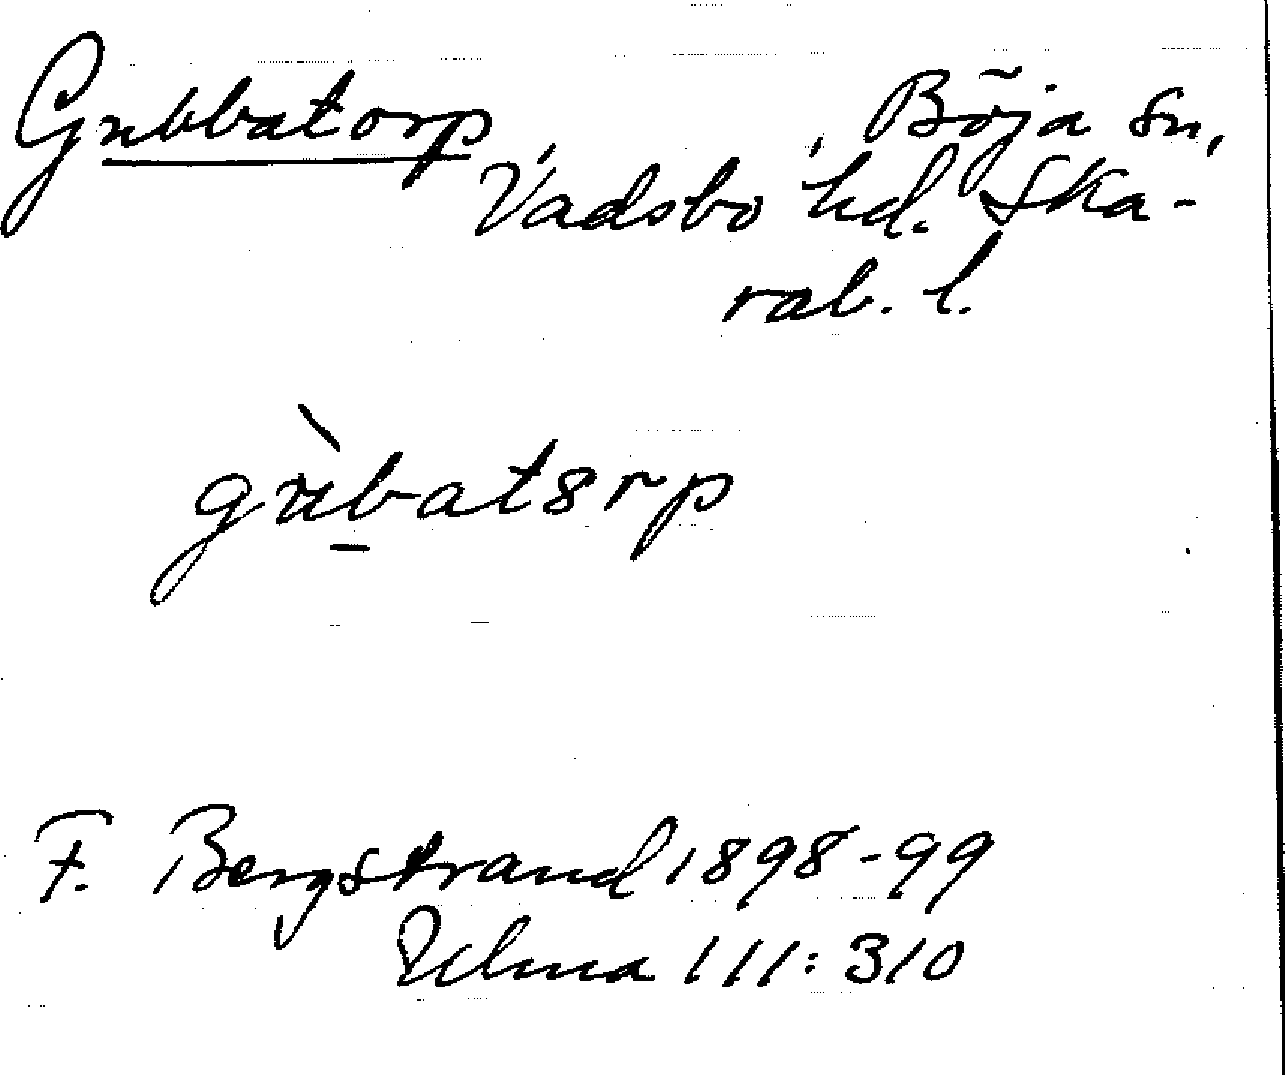 Gubbatorp, Böja sn,
Vadsbo hd. Ska-
rab. l.
gùb̲at8rp
F. Bergstrand 1898-99
Ulma 111:310